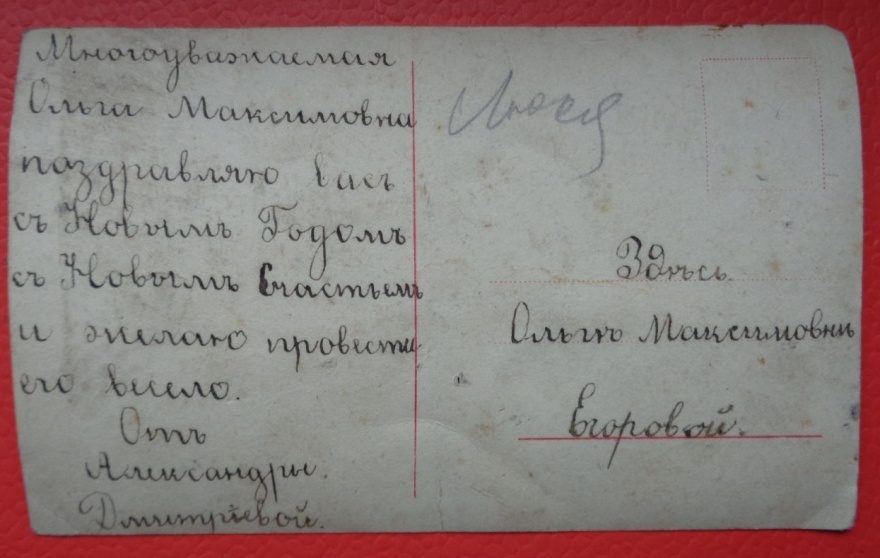 Многоуважаемая
Ольга Максимовна
поздравляю Васъ
съ Новымъ Годомъ
съ Новымъ Счастьемъ
и желаю провести
его весело.
Отъ
Александры.
Дмитріевой.
Люся
Здѣсь
Ольгѣ Максимовнѣ
Егоровой.